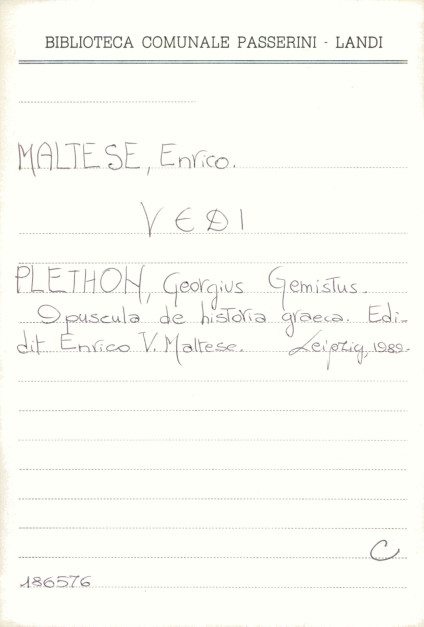 BIBLIOTECA COMUNALE PASSERINI - LANDI
MALTESE, Enrico.
VEDI
PLETHON, Georgius Gemistus.
Opuscula de historia graeca. Edi-
dit Enrico V. Maltese. Leipzig, 1989.
C
186576